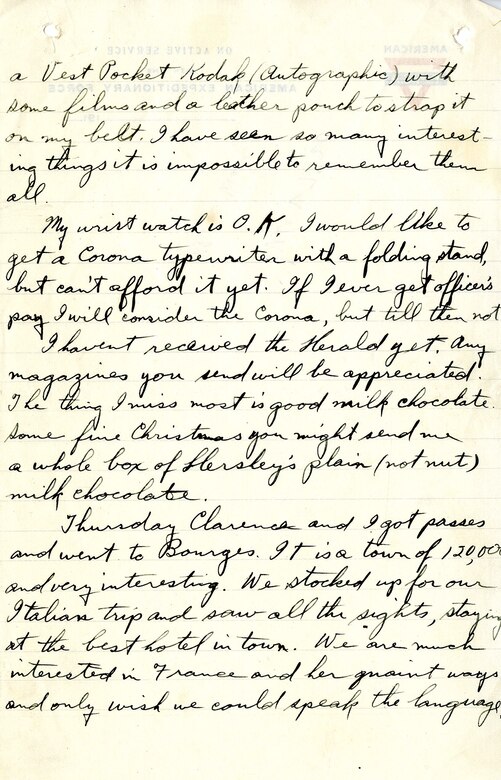 a Vest Pocket Kodak (Autographic) with
some films and a leather pouch to strap it
on my belt. I have seen so many interest-
ing things it is impossible to remember them
all.
My wrist watch is O.K. I would like to
get a Corona typewriter with a folding stand,
but can't afford it yet. If I ever get officer's
pay I will consider the Corona, but till then not
I havent received the Herald yet. Any
magazines you send will be appreciated.
The thing I miss most is good milk chocolate.
Some fine Christmas you might send me
a whole box of Hersley's plain (not nut)
milk chocolate.
Thursday Clarence and I got passes
and went to Bourges. It is a town of 120,000
and very interesting. We stocked up for our
Italian trip and saw all the sights, staying
at the best hotel in town. We are much
interested in France and her quaint ways
and only wish we could speak the language.